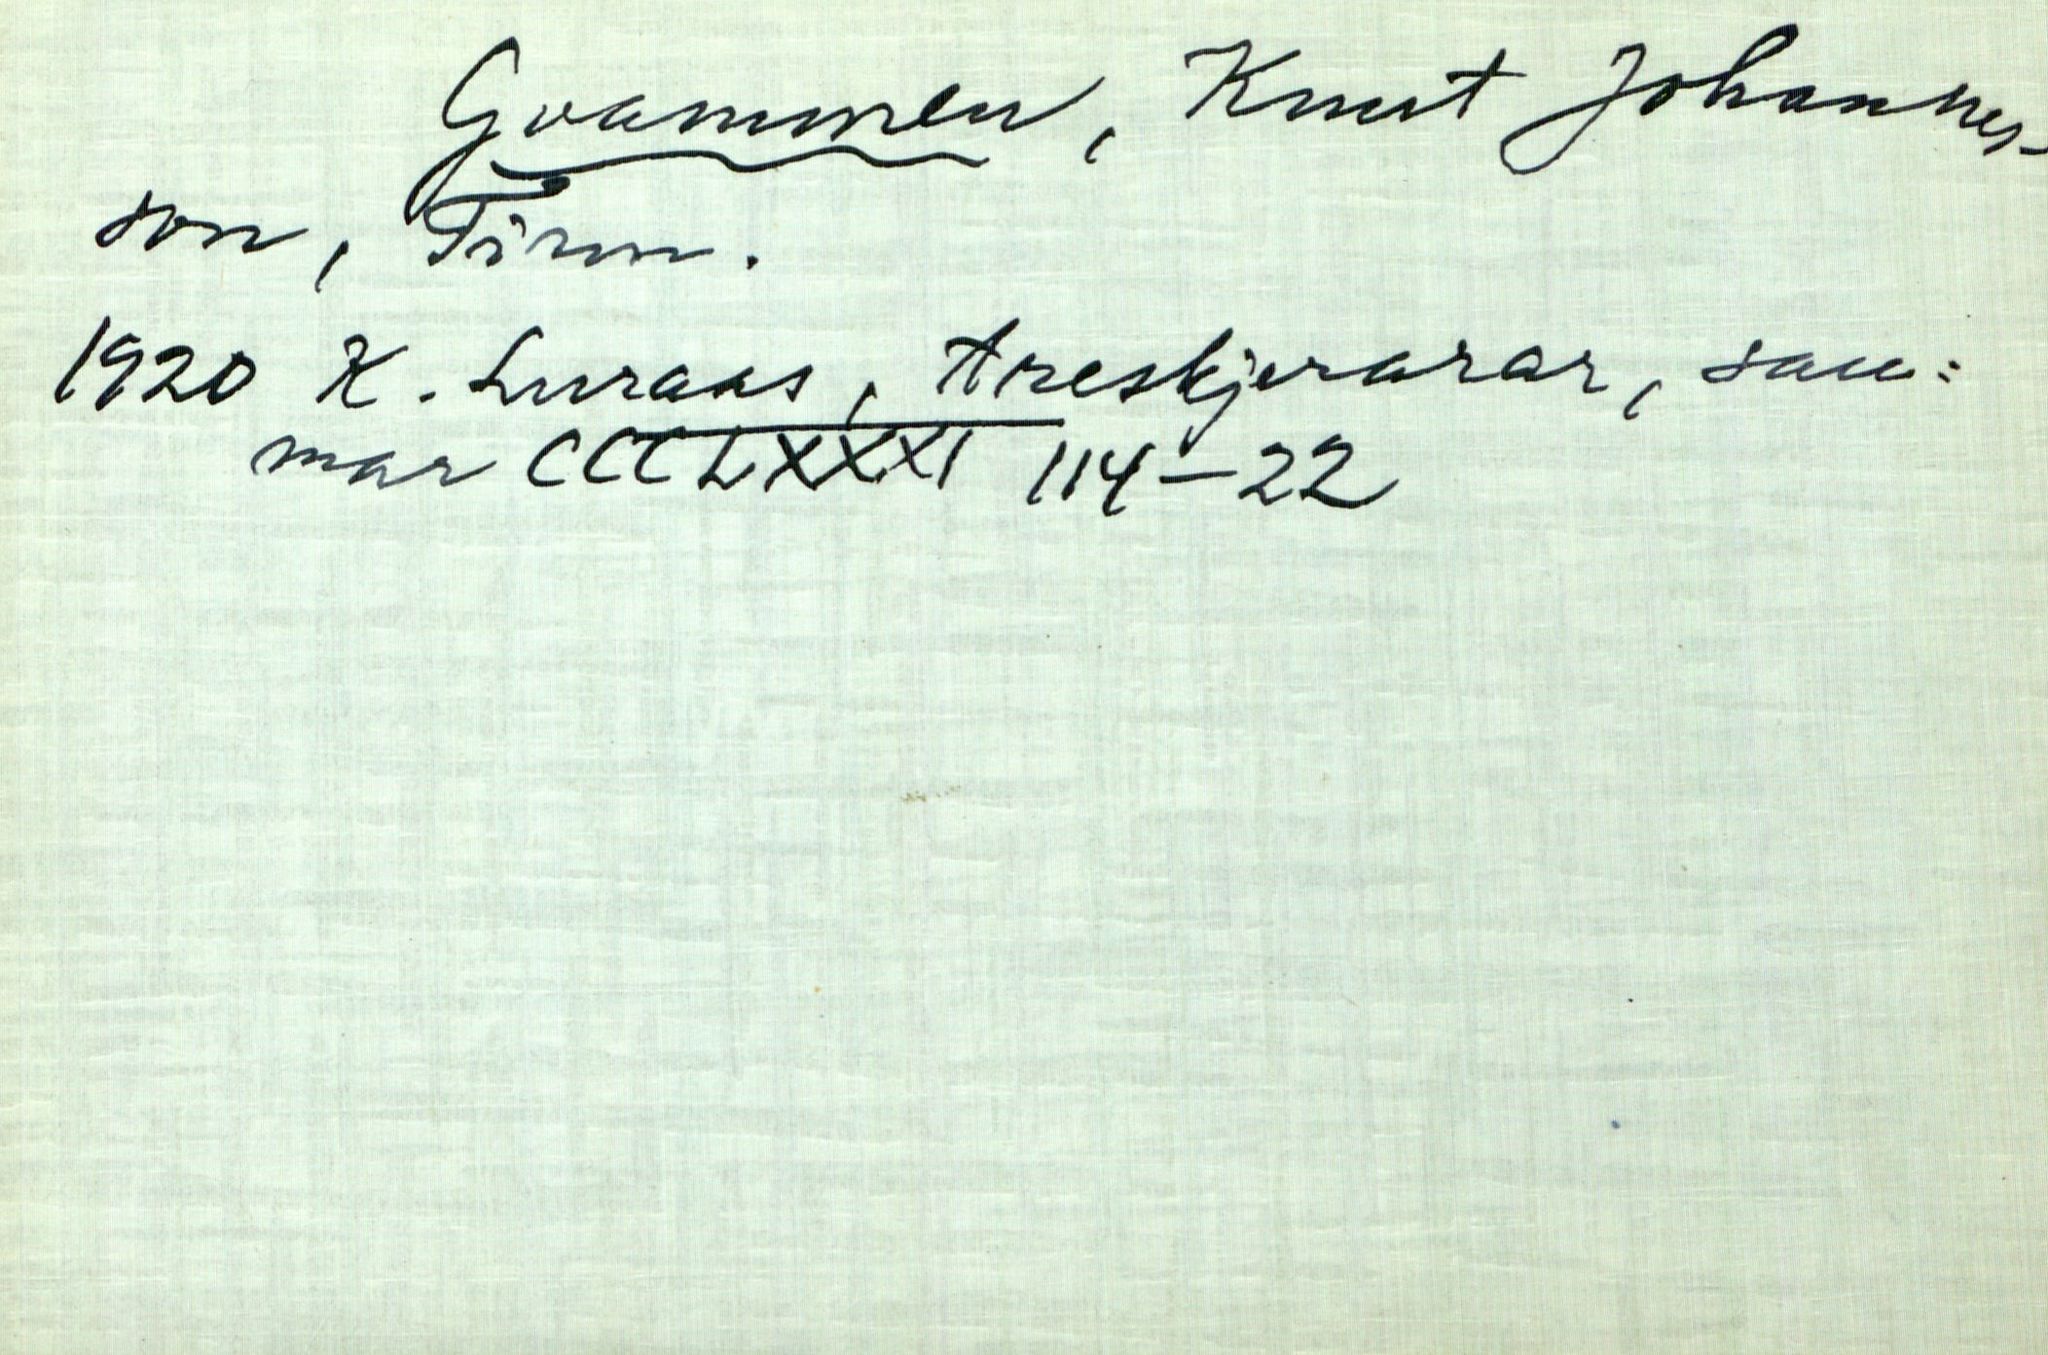 Gvammen, Knut Johannes-
son, Tinn.
1920 K. Luraas, Treskjerarar, sau=
mar CCCLXXXI 114-22